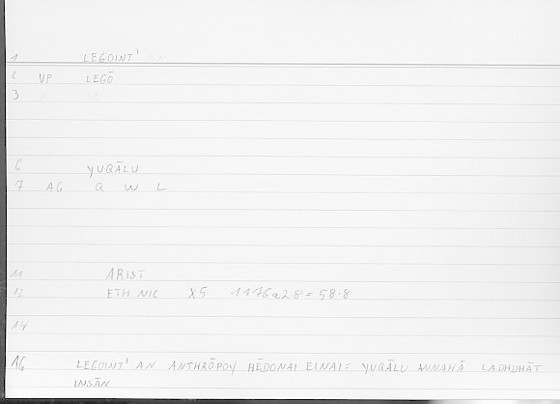 1 LEGOINT'
2 VP LEGŌ
3
6 YUQĀLU
7 AG Q W L
11 ARIST
12 ETH NIC X5 1176a28 = 58.8
14
16 LEGOINT' AN ANTHRŌPOY HĒDONAI EINAI = YUQĀLU ANNAHĀ LADHDHĀT
INSĀN